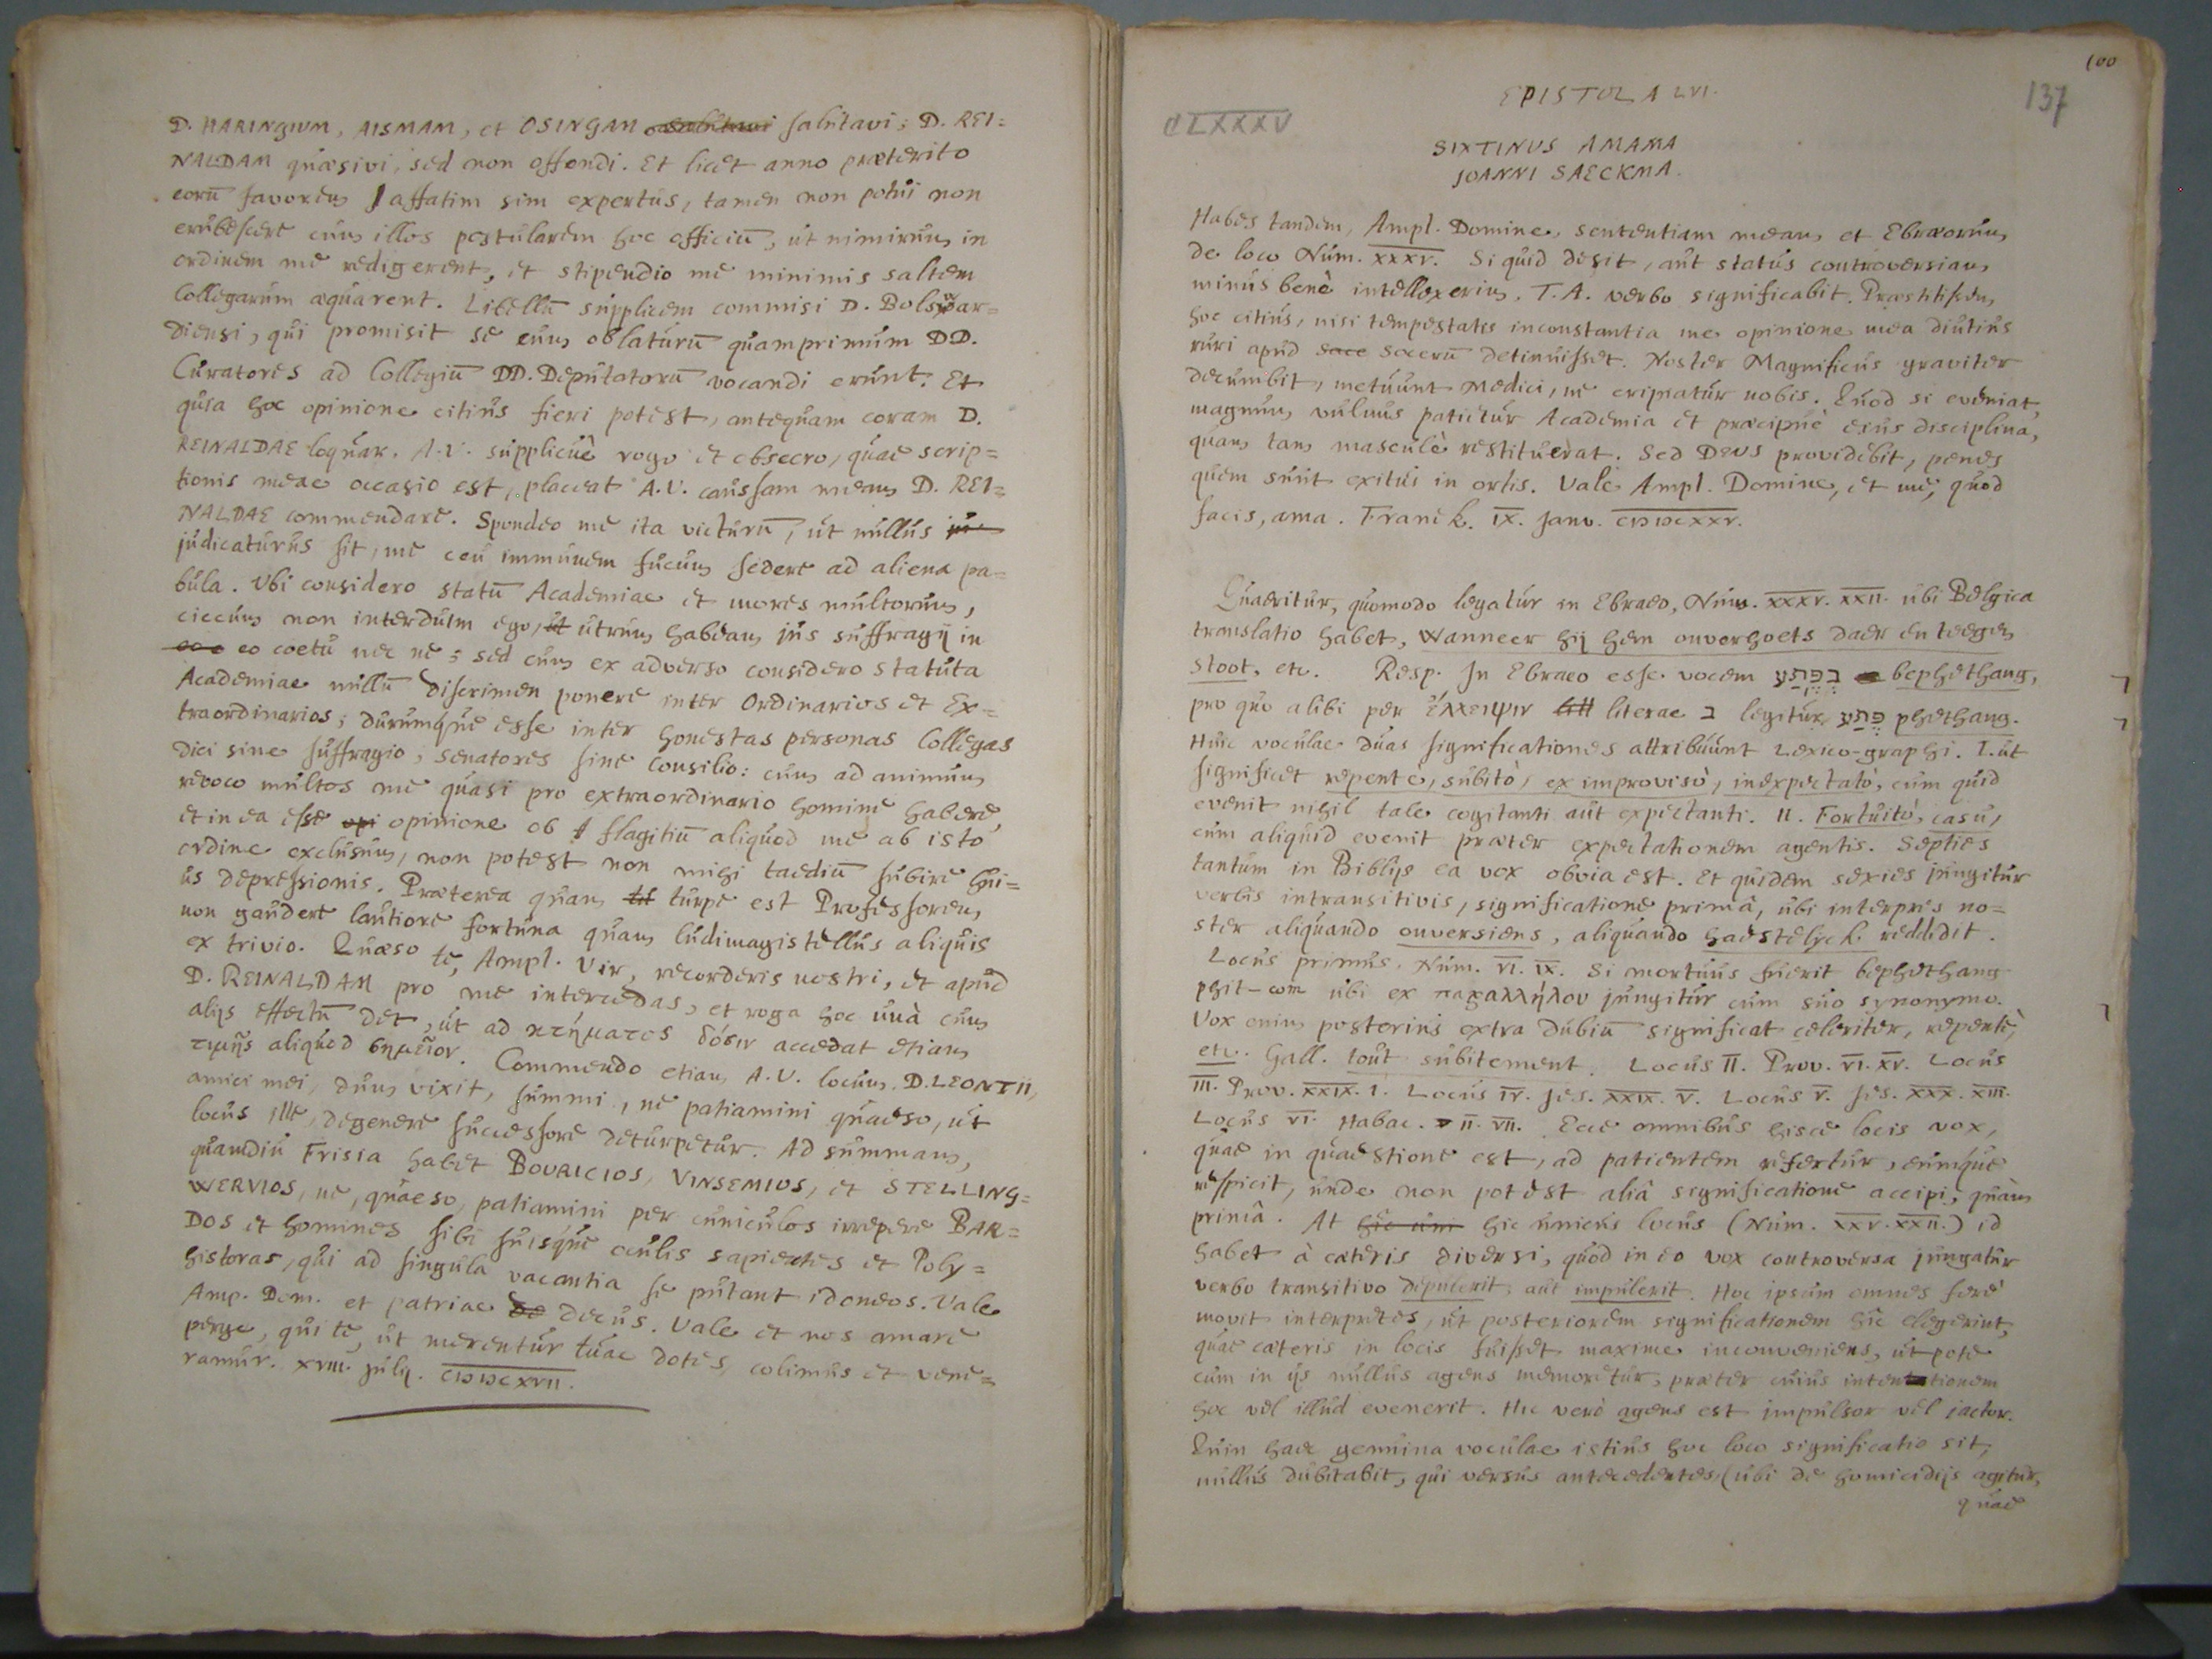 D. HARINGIUM, AISMAM, et OSINGAM salutavi; D. REI=
NALDAM quæsivi, sed non offendi. Et licet anno præterito
eorū favorem affatim sim expertus, tamen non potui non
erubescere cum illos postularem hoc officiū, ut nimirum in
ordinem me redigerent, et stipendio me minimis saltem
Collegarum æquarent. Libellū supplicem commisi D. Bolswar=
diensi, qui promisit se eum oblaturū quamprimum DD.
Curatores ad Collegiū DD. Deputatorū vocandi erunt. Et
quia hoc opinione citius fieri potest, antequam coram D.
REINALDAE loquar. A.V. supplicuè rogo et obsecro, quae scrip=
tionis meae occasio est, placeat A.V. caussam meam D. REI=
NALDAE commendare. Spondeo me ita victurū, ut nullus
judicaturus sit, me ceu immunem fucum sedere ad aliena pa=
bula. Ubi considero statū Academiae et mores multorum,
ciccum non interduim ego, utrum habeam jus suffragij in
eo coetu nec ne; sed cum ex adverso considero statuta
Academiae nullū discrimen ponere inter Ordinarios et Ex=
traordinarios; durumque esse inter honestas personas Collegas
dici sine suffragio; senatores sine Consilio: cum ad animum
revoco multos me quasi pro extraordinario homine habere,
et in ea esse opinione ob flagitiū aliquod me ab isto
ordine exclusum, non potest non mihi taediū subire hui=
us depressionis. Præterea quam turpe est Professorem
non gaudere lautiore fortuna quam ludimagistellus aliquis
ex trivio. Quæso te, Ampl. Vir, recorderis nostri, et apud
D. REINALDAM pro me intercedas, et roga hoc unà cum
alijs effectū det, ut ad κτήματος δόσιν accedat etiam
τιμῆς aliquod σημεῖον. Commendo etiam A.V. locum D. LEONTII,
amici mei, dum vixit, summi, ne patiamini quaeso, ut
locus ille degenere successore deturpetur. Ad summam,
quamdiu Frisia habet BOURICIOS, VINSEMIOS, et STELLING=
WERVIOS, ne, quaeso, patiamini per cuniculos irrepere BAR=
DOS et homines sibi suisque oculis sapientes et Poly=
historas, qui ad singula vacantia se putant idoneos. Vale
Amp. Dom. et patriae decus. Vale et nos amare
perge, qui te, ut merentur tuae dotes, colimus et vene=
ramur. XVIII. Julij. CIↃIↃCXVII.
100
137
EPISTOLA LVI.
CLXXXV
SIXTINUS AMAMA
JOANNI SAECKMA.
Habes tandem, Ampl. Domine, sententiam meam et Ebræorum
de loco Num. XXXV. Si quid desit, aut status controversiam
minus benè intellexerim, T.A. verbo significabit. Præstitissem
hoc citius, nisi tempestatis inconstantia me opinione mea diutius
ruri apud sace socerū detinuisset. Noster Magnificus graviter
decumbit, metuunt Medici, ne eripiatur nobis. Quod si eveniat,
magnum vulnus patietur Academia et præcipuè eius disciplina,
quam tam masculè restituerat. Sed DEUS providebit, penes
quem sunt exitus in ortis. Vale Ampl. Domine, et me, quod
facis, ama. Franek. IX. Janv. CIↃIↃCXXV.
Quaeritur, quomodo legatur in Ebraeo, Num. XXXV. XXII. ubi Belgica
translatio habet, Wanneer hij hem onverhoets daer en teegen
stoot, etc. Resp. In Ebraeo esse vocem בְּפֶתַע bephethang,
pro quo alibi per ἔλλειψιν literae ב legitur פֶּתַע phethang.
Huic voculae duas significationes attribuunt Lexico-graphi. I. ut
significet repentè, subitò, ex improvisò, inexpectatò, cum quid
evenit nihil tale cogitanti aut expectanti. II. Fortuitò, casu,
cum aliquid evenit præter expectationem agentis. Septies
tantum in Biblijs ea vox obvia est. Et quidem sexies jungitur
verbis intransitivis, significatione primâ, ubi interpres no=
ster aliquando onversiens, aliquando haestelyck reddidit.
Locus primus. Num. VI. IX. Si mortuus fuerit bephethang
phit-om ubi ex παραλλήλου jungitur cum suo synonymo.
Vox enim posterius extra dubiū significat celeriter, repentè,
etc. Gall. tout subitement. Locus II. Prov. VI. XV. Locus
III. Prov. XXIX. I. Locus IV. Jes. XXIX. V. Locus V. Jes. XXX. XIII.
Locus VI. Habac. II. VII. Ecce omnibus hisce locis vox,
quae in quaestione est, ad patientem refertur, eumque
respicit, unde non potest aliâ significatione accipi, quàm
primâ. At hîc uni hic unicus locus (Num. XXXV. XXII.) id
habet à cæteris diversi, quod in eo vox controversa jungatur
verbo transitivo depulerit, aut impulerit. Hoc ipsum omnes ferè
movit interpretes, ut posteriorem significationem hîc elegerint,
quae cæteris in locis fuisset maxime inconveniens, utpote
cum in ijs nullus agens memoretur, præter cuius intentionem
hoc vel illud evenerit. Hic verò agens est impulsor vel jactor.
Quin haec genuina voculae istius hoc loco significatio sit,
nullus dubitabit, qui versus antecedentes (ubi de homicidijs agitur,
quae